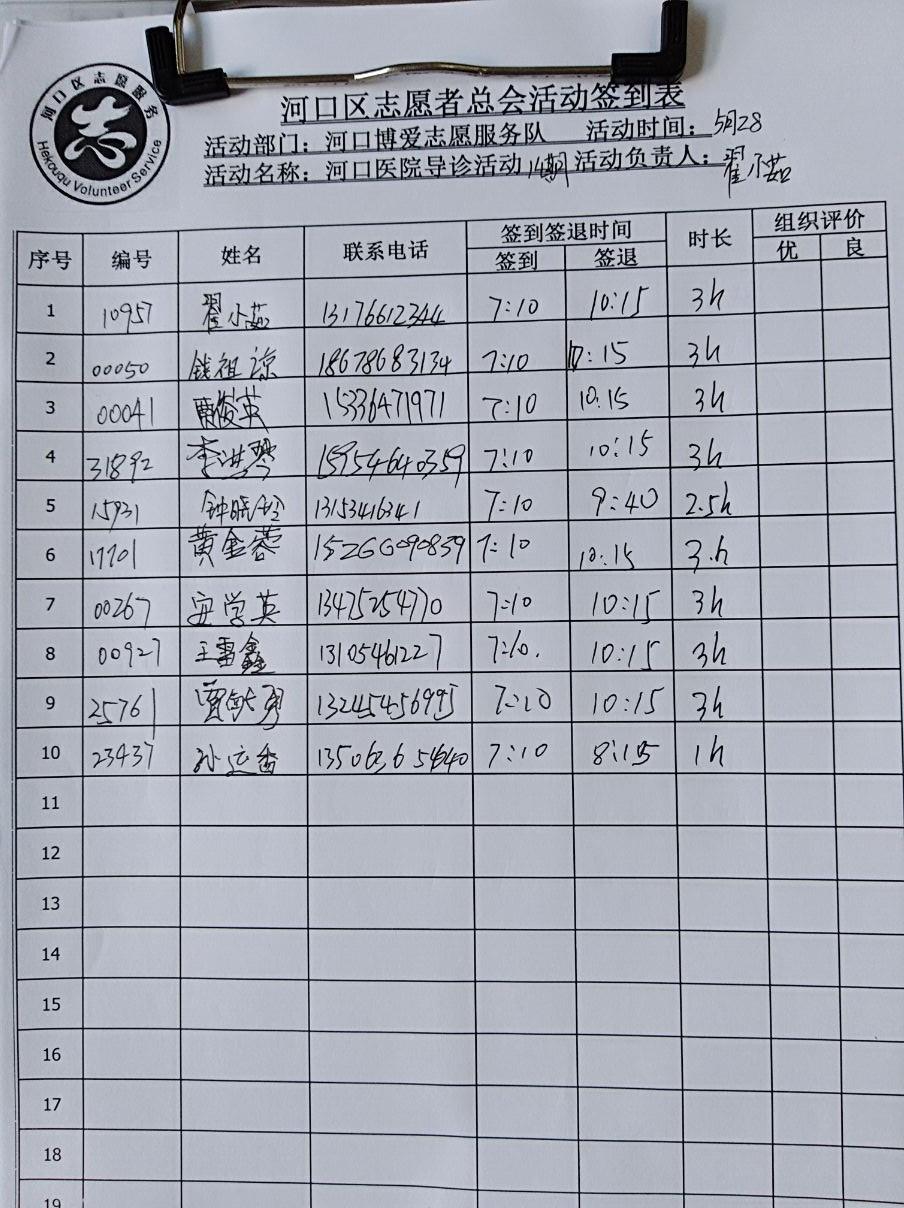 河口区志愿服务
志
Hekouqu Volunteer Service
河口区志愿者总会活动签到表
活动部门：河口博爱志愿服务队 活动时间：5月28
活动名称：河口医院导诊活动 期 活动负责人：翟小茹
序号 编号 姓名 联系电话 签到签退时间 时长 组织评价
签到 签退 优 良
1 10957 翟小茹 13176612344 7:10 10:15 3h
2 00050 钱祖谅 18678683134 7:10 10:15 3h
3 00041 英 15336471971 7:10 10:15 3h
4 31892 李洪琴 15954640359 7:10 10:15 3h
5 15931 钟晓玲 13153416341 7:10 9:40 2.5h
6 17701 黄金蓉 15266090839 7:10 10:15 3.h
7 00267 安学英 13475254770 7:10 10:15 3h
8 00927 王雷鑫 13105461227 7:10. 10:15 3h
9 25761 7:10 10:15 3h
10 23437 孙运香 7:10 8:15 1h
11
12
13
14
15
16
17
18
19